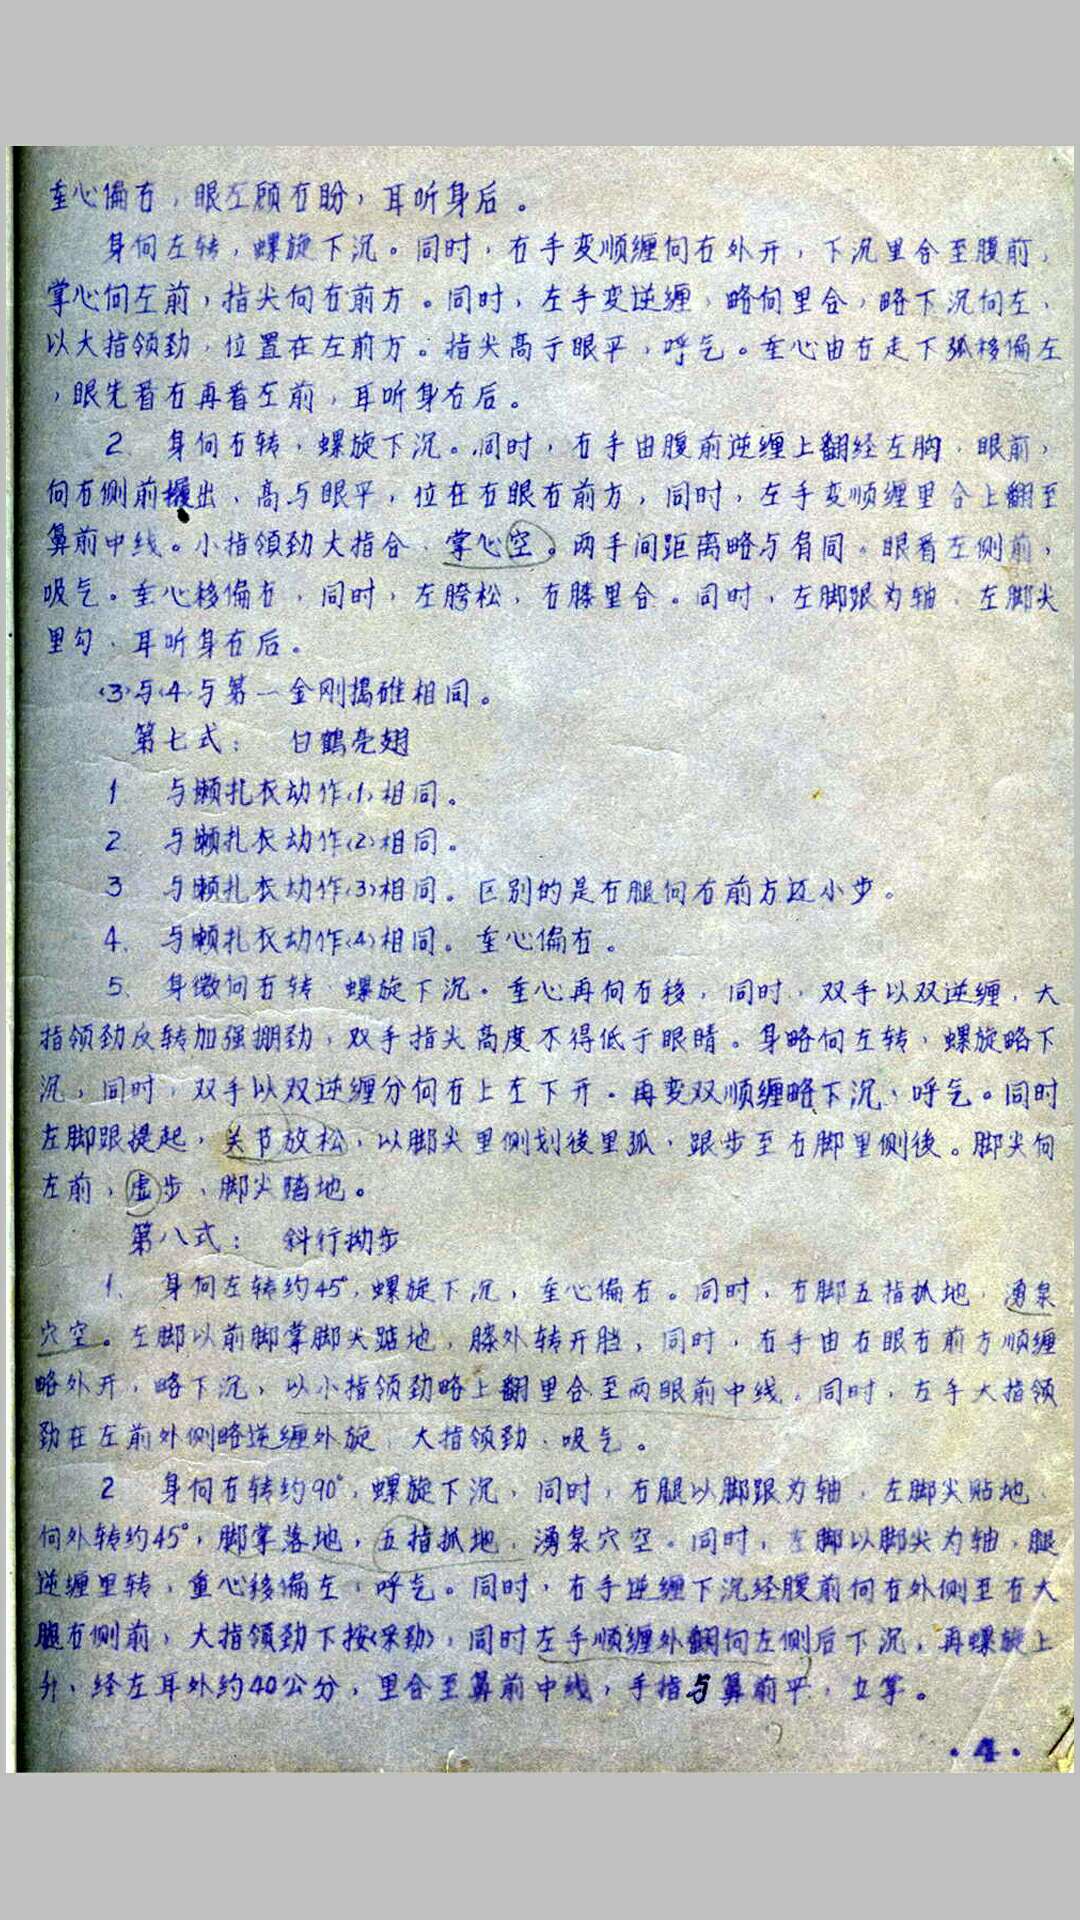 重心偏右，眼左顾右盼，耳听身后。
身向左转，螺旋下沉。同时，右手变顺缠向右外开，下沉里合至腹前，
掌心向左前，指尖向右前方。同时，左手变逆缠，略向里合，略下沉向左，
以大指领劲，位置在左前方。指尖高于眼平，呼气。重心由右走下弧移偏左
，眼先看右再看左前，耳听身右后。
2 身向右转，螺旋下沉。同时，右手由腹前逆缠上翻经左胸，眼前，
向右侧前掤出，高与眼平，位在右眼右前方，同时，左手变顺缠里合上翻至
鼻前中线。小指领劲大指合，掌心空。两手间距离略与肩同。眼看左侧前，
吸气。重心移偏右，同时，左胯松，右膝里合。同时，左脚跟为轴，左脚尖
里勾，耳听身右后。
(3)与(4)与第一金刚捣碓相同。
第七式： 白鹤亮翅
1 与懒扎衣动作(1)相同。
2 与懒扎衣动作(2)相同。
3 与懒扎衣动作(3)相同。区别的是右腿向右前方迈小步。
4、与懒扎衣动作(4)相同。重心偏右。
5、身微向右转，螺旋下沉。重心再向右移，同时，双手以双逆缠，大
指领劲反转加强掤劲，双手指尖高度不得低于眼睛。身略向左转，螺旋略下
沉，同时，双手以双逆缠分向右上左下开。再变双顺缠略下沉，呼气。同时
左脚跟提起，关节放松，以脚尖里侧划後里弧，跟步至右脚里侧後。脚尖向
左前，虚步，脚尖踏地。
第八式： 斜行拗步
1、身向左转约45°，螺旋下沉，重心偏右。同时，右脚五指抓地，湧泉
穴空。左脚以前脚掌脚尖踮地，膝外转开裆，同时，右手由右眼右前方顺缠
略外开，略下沉，以小指领劲略上翻里合至两眼前中线。同时，左手大指领
劲在左前外侧略逆缠外旋，大指领劲，吸气。
2 身向右转约90°，螺旋下沉，同时，右腿以脚跟为轴，左脚尖贴地，
向外转约45°，脚掌落地，五指抓地，湧泉穴空。同时，左脚以脚尖为轴，腿
逆缠里转，重心移偏左，呼气。同时，右手逆缠下沉经腹前向右外侧至右大
腿右侧前，大指领劲下按(采劲)，同时左手顺缠外翻向左侧后下沉，再螺旋上
升，经左耳外约40公分，里合至鼻前中线，手指与鼻前平，立掌。
·4·